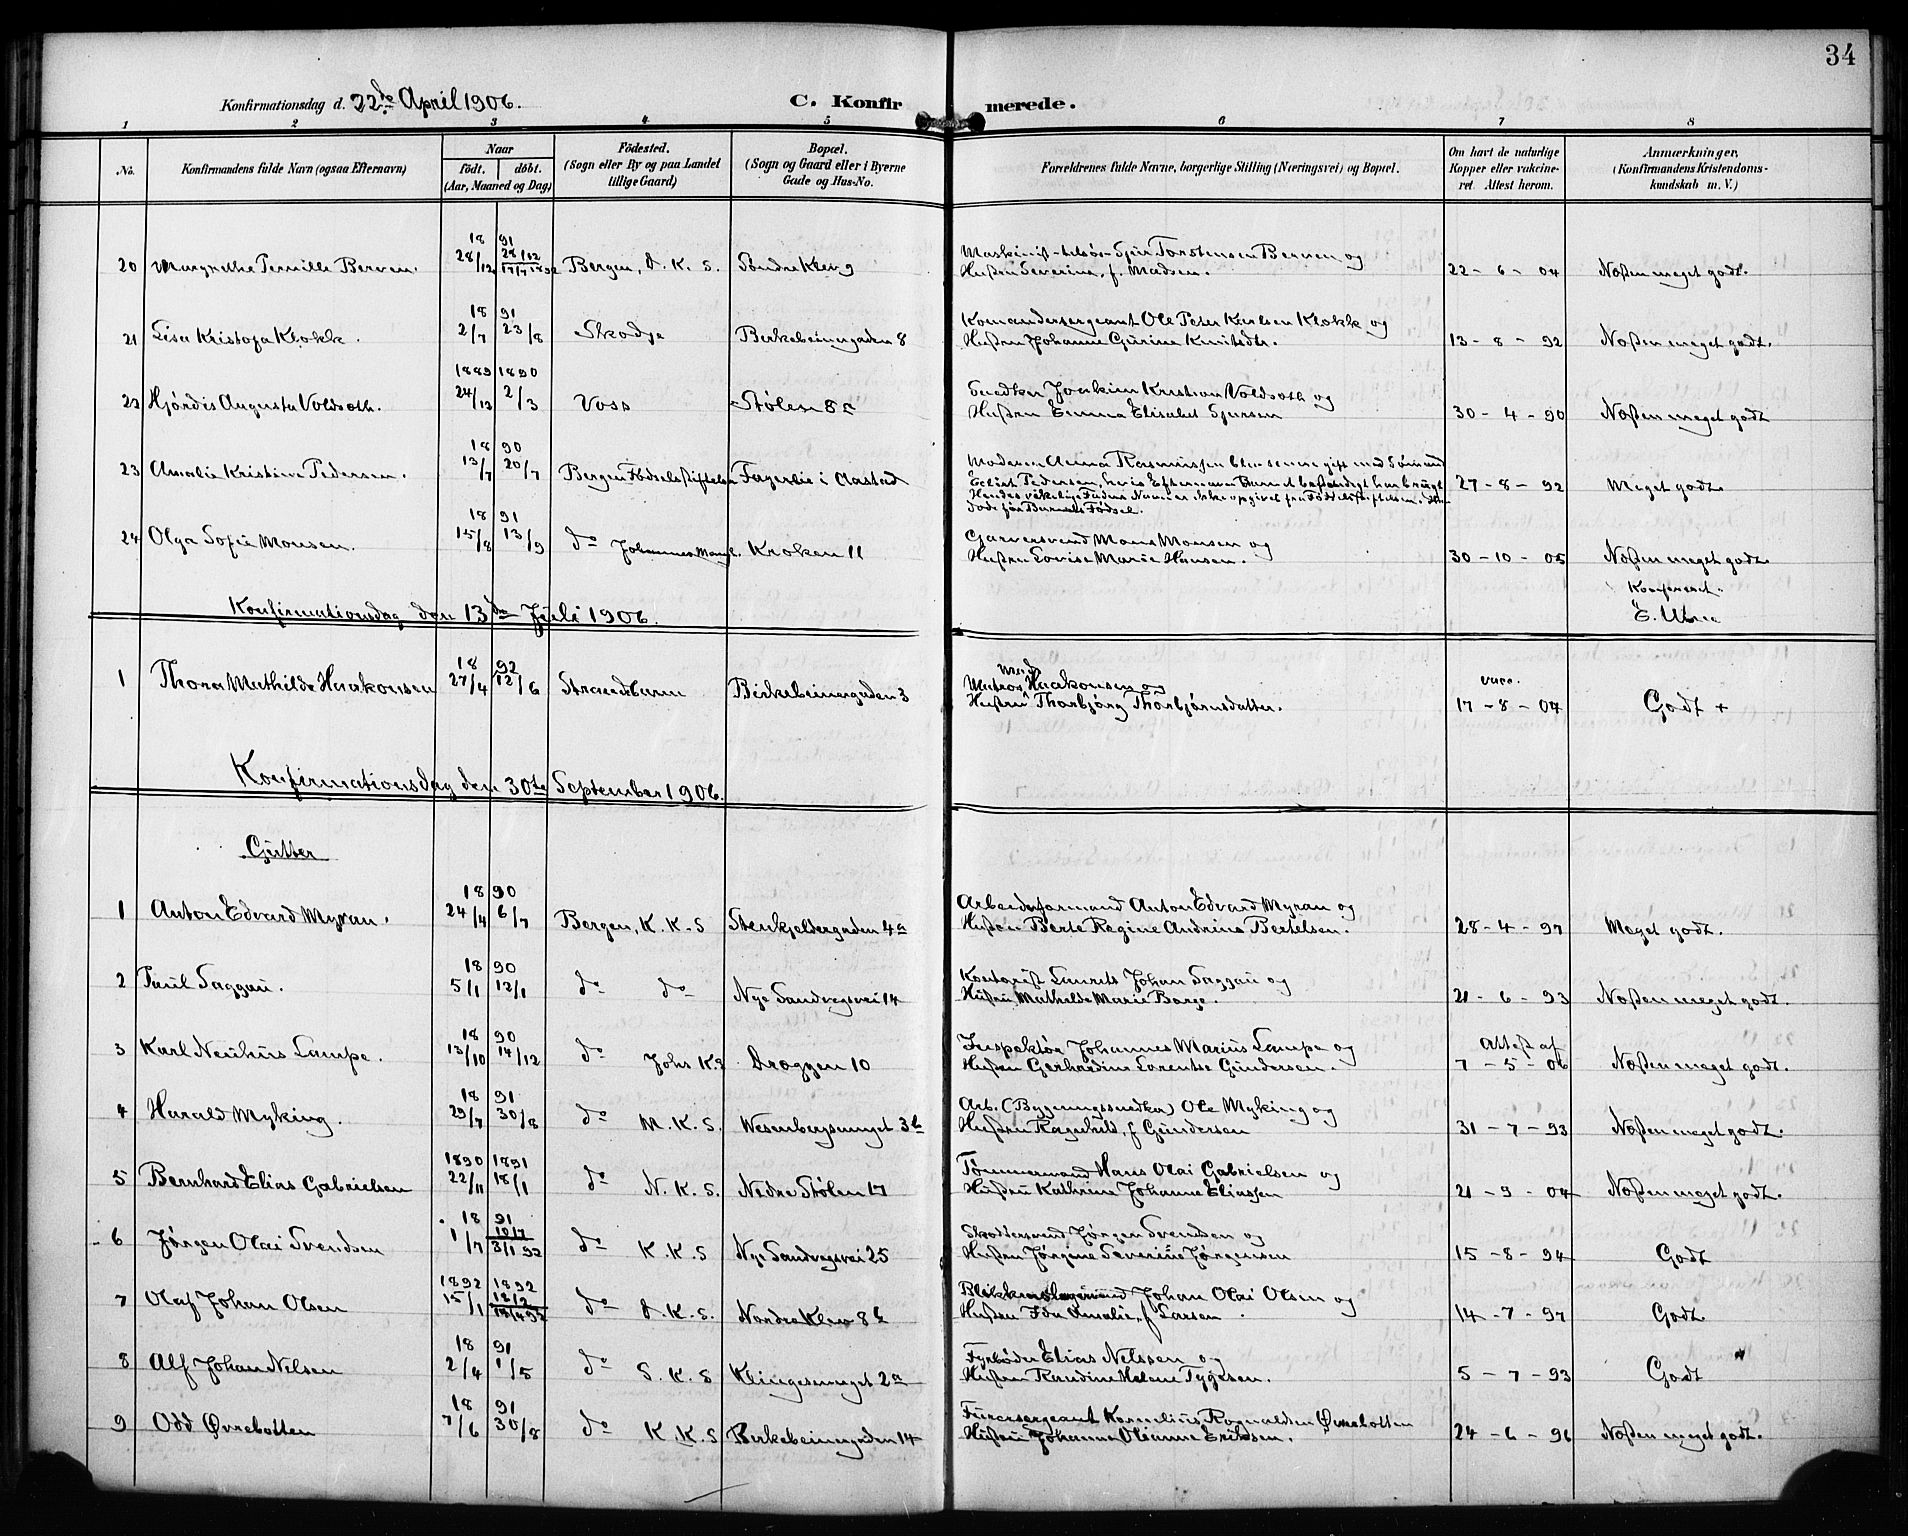 34
Konfirmationsdag d. 22de April 1906.
C. Konfirmerede.
1 2 3 4 5 6 7 8
No.
Konfirmandens fulde Navn (ogsaa Efternavn)
Naar
født. døbt.
(Aar, Maaned og Dag)
Fødested.
(Sogn eller By og paa Landet
tillige Gaard)
Bopæl.
(Sogn og Gaard eller i Byerne
Gade og Hus-No.
Forældrenes fulde Navne, borgerlige Stilling (Næringsvei) og Bopæl.
Om havt de naturlige
Kopper eller vakcine-
ret. Attest herom.
Anmærkninger,
(Konfirmandens Kristendoms-
kundskab m. V.)
18 91
20 Margrethe Pernille Berven. 28/12 28/12 17/7 1892 Bergen, D. K. S. Søndre Klev 9
Sjur Torstensen Berven og
Hustru Severine, f. Madsen. 22-6-04 Næsten meget godt.
18 91
21 Lisa Kristofa Klokk. 2/7 23/8 Skodje Birkebeinergaden 8
Komandersergeant Ole Peter Karlsen Klokk og
Hustru Johanne Gurine Knutsdtr. 13-8-92 Næsten meget godt.
1889 1890
23 Hjørdis Augusta Voldsoth. 24/12 2/3 Voss Stølen 8c
Snedker Joakim Kristian Voldsoth og
Hustru Emma Elisabet Sjursen 30-4-90 Næsten meget godt
18 90
23 Amalie Kristine Pedersen. 13/7 20/7 Bergen Fødselsstiftelse Fagerlie i Aarstad
Moderen Anna Rasmussen blev senere gift med Sømand
Pedersen, hvis Efternavn Barnet har brugt
Hendes virkelige Faders Navn er ikke opgivet fra Fødselsstiftelsen.
døde før Barnets Fødsel. 27-8-92 Meget godt.
18 91
24 Olga Sofie Monsen. 15/8 13/9 do Johannes Mengh. Kroken 11
Garversvend Mons Monsen og
Hustru Lovise Marie Hansen. 30-10-05 Næsten meget godt.
Konfereret.
Konfirmationsdag den 13de Juli 1906.
18 92
1 Thora Mathilde Haakonsen 27/4 12/6 Strandebarm Birkebeinergaden 3
Matros Mads Haakonsen og
Hustru Thorbjørg Thorbjørnsdatter. vacc. 17-8-04 Godt +
Konfirmationsdag den 30te September 1906.
Gutter
18 90
1 Anton Edvard Myran. 24/4 6/7 Bergen, K. K. S Stenkjeldergaden 4a
Arbeidsformand Anton Edvard Myran og
Hustru Berte Regine Andrine Bertelsen. 28-4-97 Meget godt.
18 90
2 Paul Saggau. 5/1 12/1 do do Nye Sandvigsvei 14
Kontorist Laurits Johan Saggau og
Hustru Mathilde Marie Borge. 21-6-93 Næsten meget godt.
18 90
3 Karl Neuhüs Lampe. 13/10 14/12 do Johs K. S Dræggen 10
Inspektør Johannes Marius Lampe og
Hustru Gerhardine Lorentse Gundersen. Attest af 7-5-06 Næsten meget godt.
18 91
4 Harald Myking. 29/7 30/8 do M. K. S. Wesenbergsmuget 3b
Arb. (Bygningssnedker) Ole Myking og
Hustru Ragnhild, f. Gundersen 31-7-93 Næsten meget godt.
1890 1891
5 Bernhard Elias Gabrielsen 22/11 18/1 do N. K. S. Nedre Stølen 17
Tømmermand Hans Olai Gabrielsen og
Hustru Kathrine Johanne Eliassen 21-9-04 Næsten meget godt.
18 91
6 Jørgen Olai Svendsen 1/7 10/7 3/1 92 do K. K. S Nye Sandvigsvei 25
Jørgen Svendsen og
Hustru Jørgine Severine Jørgensen 15-8-94 Godt
1892 1892
7 Olaf Johan Olsen 15/1 12/2 do D. K. S. Nordre Klev 8b
Johan Olai Olsen og
Hustru Ida Amalie, f. Larsen. 14-7-97 Godt
18 91
8 Alf Johan Nelsen 2/4 1/5 do S. K. S Klingesmuget 2a
Fyrbøder Elias Nelssen og
Hustru Randine Helene Tygesen. 5-7-93 Godt
18 91
9 Odd Øvrebotten 7/6 30/8 do K. K. S Birkebeinergaden 14
Furersergeant Kornelius Rognaldsen Øvrebotten
Hustru Johanne Oleanne Eriksen. 24-6-96 Næsten meget godt.